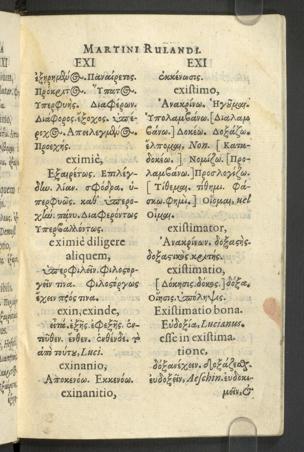 MARTINI RULANDI.
EXI EXI
ἐξῃρημένος. Παναίρετος.
Πρόκριτος. Ὕπατος.
Ὑπερφυής. Διαφέρων.
Διάφορος. ἔξοχος. ὑπέ-
ροχος. Ἀπειλεγμένος.
Προεχής.
eximiè,
Ἐξαιρέτως. Ἐπιλέγ-
δην. λίαν. σφόδρα. ὑ-
περφυῶς. καθ' ὑπερο-
χὴν. πάνυ. Διαφερόντως
Ὑπερβαλόντως.
eximiè diligere
aliquem,
ὑπερφιλεῖν. Φιλοστορ-
γεῖν τινα. Φιλοστόργως
ἔχειν πρός τινα.
exin, exinde,
εἶτα. ἑξῆς. ἐφεξῆς. ἐν-
τεῦθεν. ἔνθεν. ἐνθένδε. τ
ἀπὸ τούτου, Luci.
exinanio,
Ἀποκενόω. Ἐκκενόω.
exinanitio,
ἐκκένωσις.
existimo,
Ἀνακρίνω. Ἡγοῦμαι.
Ὑπολαμβάνω. [Διαλαμ
βάνω.] Δοκέω. Δοξάζω.
ἔλπομαι, Non. [Κατα-
δοκέω.] Νομίζω. [Προ-
λαμβάνω.] Προσλογίζω.
[Τίθεμαι. τίθημι. Φά-
σκω. Φημί.] Οἴομαι, vel
Οἶμαι.
existimator,
Ἀνακρίνων. δοξαστὴς.
δοξαστικὸς κριτής.
existimatio,
[Δόκησις. δόκος.] δόξα.
Οἴησις. ὑπόληψις.
Existimatio bona.
Εὐδοξία, Lucianus.
esse in existima-
tione,
δόξαν ἔχειν. δοξάζεσθ.
εὐδοξεῖν, Aeschin. εὐδοκι-
μεῖν, &